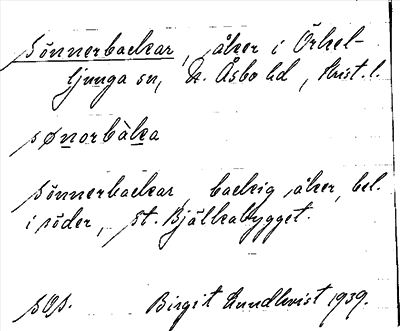 Sönnerbackar, åker i Örkel-
ljunga sn, N. Åsbo hd, Krist. l.
sønorbàka
Sönnerbackar, backig åker, bel.
i söder, St. Bjälkabygget.
Birgit Lundkvist 1939.